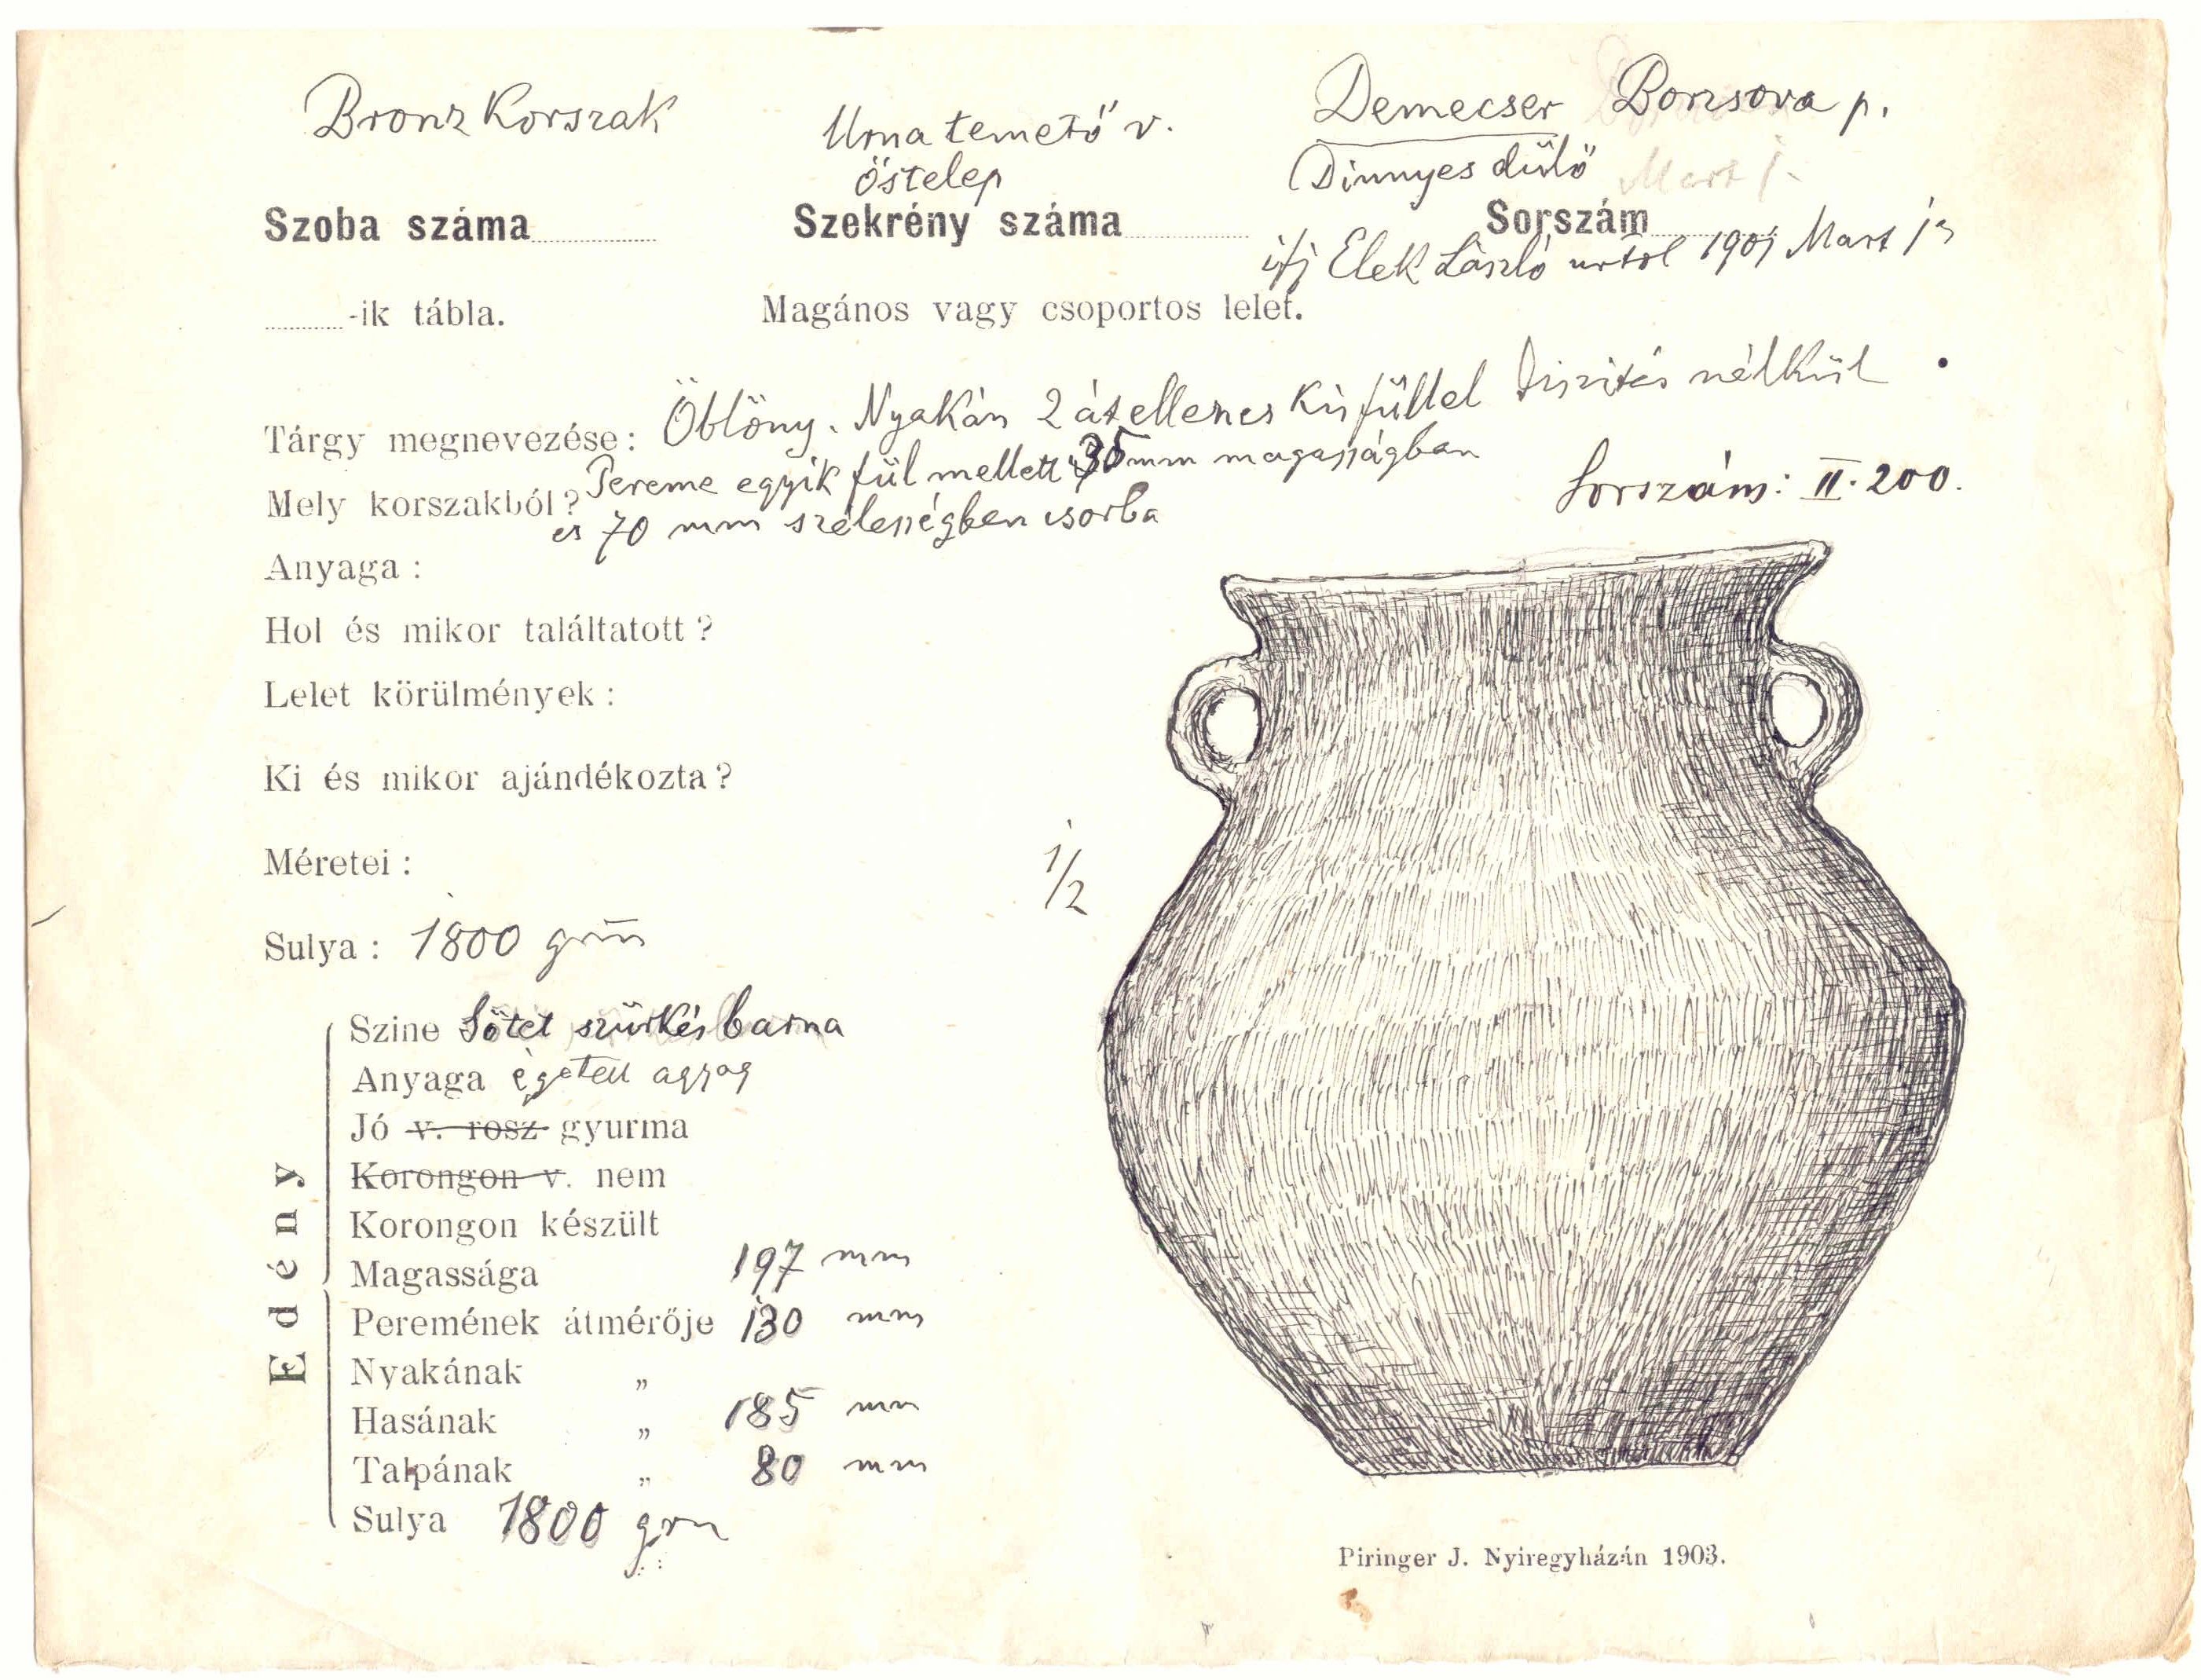 Bronz Korszak
Urna temető v.
őstelep
Demecser Borzsova p.
Dinnyes dűlő
Mart 1.
Szoba száma
Szekrény száma
Sorszám
ifj Elek László urtol 1905 Mart
-ik tábla.
Magános vagy csoportos lelet.
Tárgy megnevezése: Öblöny. Nyakán 2 átellenes kis füllel diszités nélkül
Pereme egyik fül mellett 35 mm magasságban
Mely korszakból?
Sorszám: II. 200.
es 70 mm szélességben csorba
Anyaga:
Hol és mikor találtatott?
Lelet körülmények:
Ki és mikor ajándékozta?
Méretei:
1/2
Sulya: 1800 grm
Edény
Szine Sötét szürkés barna
Anyaga égetett agyag
Jó v. rosz gyurma
Korongon v. nem
Korongon készült
Magassága 197 mm
Peremének átmérője 130 mm
Nyakának „
Hasának „ 185 mm
Talpának „ 80 mm
Sulya 1800 grm
Piringer J. Nyiregyházán 1903.